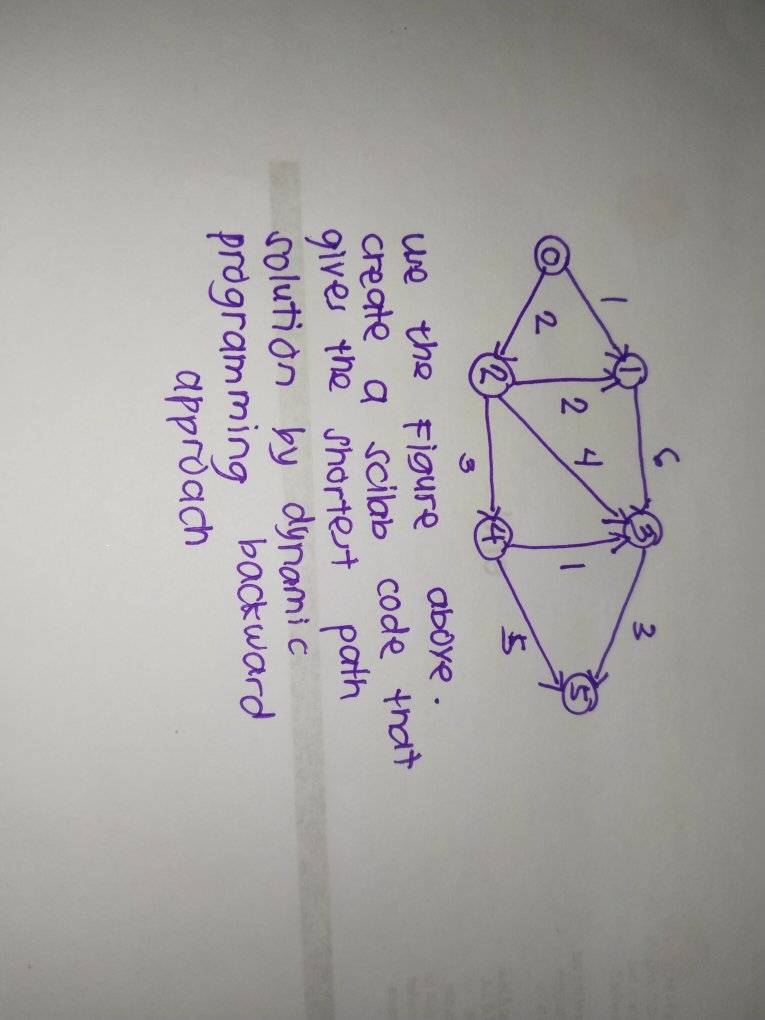 0
1
2
1
2
2
6
4
3
3
4
1
3
5
5
use the Figure above.
create a scilab code that
gives the shortest path
solution by dynamic
programming backward
approach